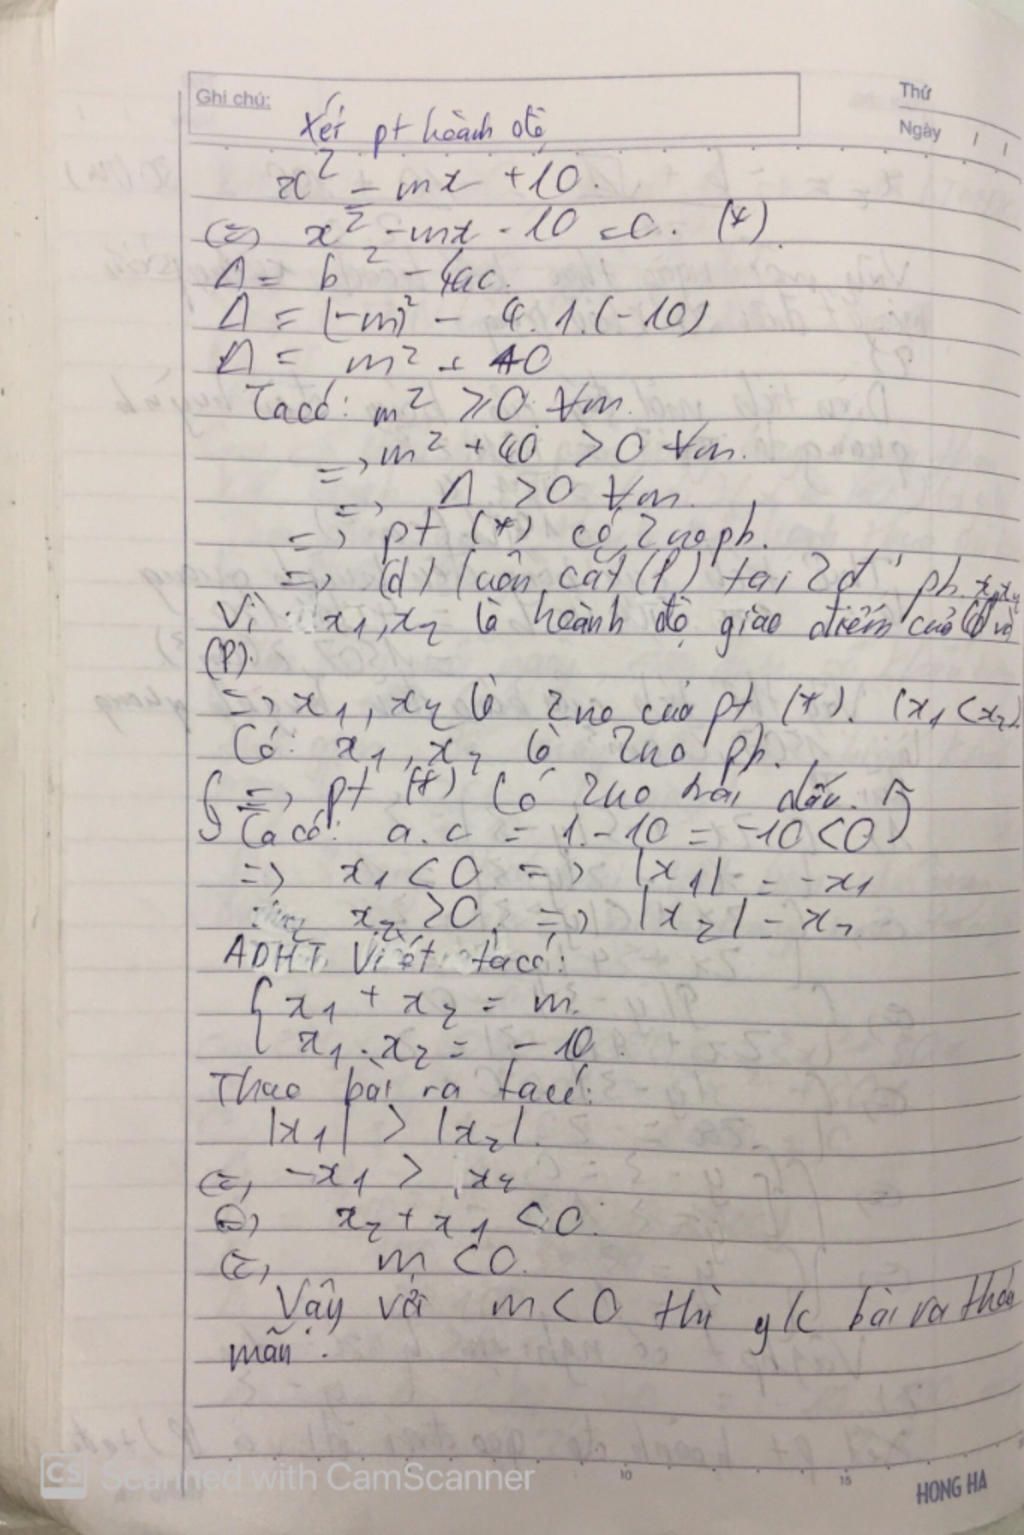 Ghi chú:
Thứ
Ngày
Xét pt hoành độ
x² = mx + 10.
(=) x² - mx - 10 = 0. (*)
Δ = b² - 4ac.
Δ = (-m)² - 4.1.(-10)
Δ = m² + 40
Ta có: m² ≥ 0 ∀m.
=> m² + 40 > 0 ∀m.
=> Δ > 0 ∀m.
=> pt (*) có 2 no pb.
=> (d) luôn cắt (P) tại 2 đ' pb. x₁, x₂
Vì x₁, x₂ là hoành độ giao điểm của (d) và
(P).
=> x₁, x₂ là 2 no của pt (*). (x₁ < x₂).
Có: x₁, x₂ là 2 no pb.
{ => pt (*) có 2 no trái dấu.
Ta có: a.c = 1.-10 = -10 < 0
=> x₁ < 0 => |x₁| = -x₁
x₂ > 0, => |x₂| = x₂
ADHT Viét ta có:
{ x₁ + x₂ = m.
x₁ . x₂ = -10.
Theo bài ra ta có:
|x₁| > |x₂|.
(=) -x₁ > x₂
(=) x₂ + x₁ < 0.
(=) m < 0.
Vậy với m < 0 thì y/c bài ra thỏa
mãn.
10
15
HONG HA
CS Scanned with CamScanner